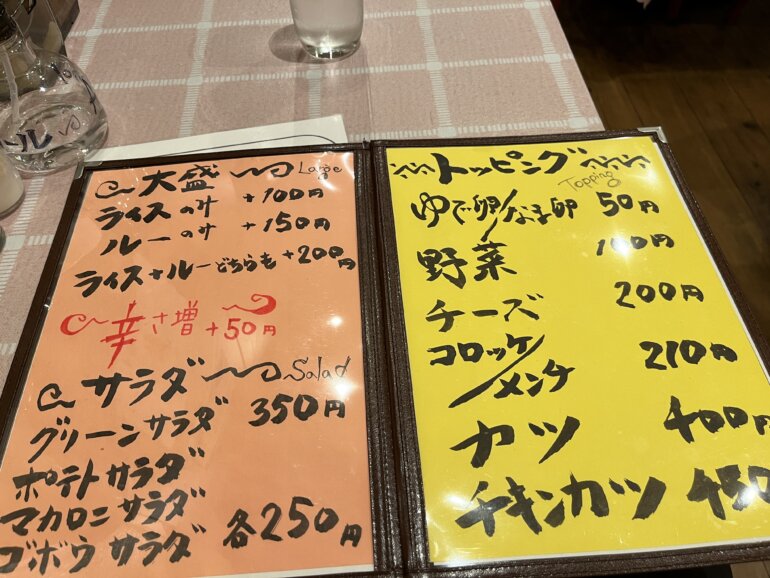 大盛 Large
ライスのみ +100円
ルーのみ +150円
ライス+ルーどちらも +200円
辛さ増 +50円
サラダ Salad
グリーンサラダ 350円
ポテトサラダ
マカロニサラダ
ゴボウサラダ 各250円
トッピング
Topping
ゆで卵/なま卵 50円
野菜 100円
チーズ 200円
コロッケ/メンチ 210円
カツ 400円
チキンカツ 450